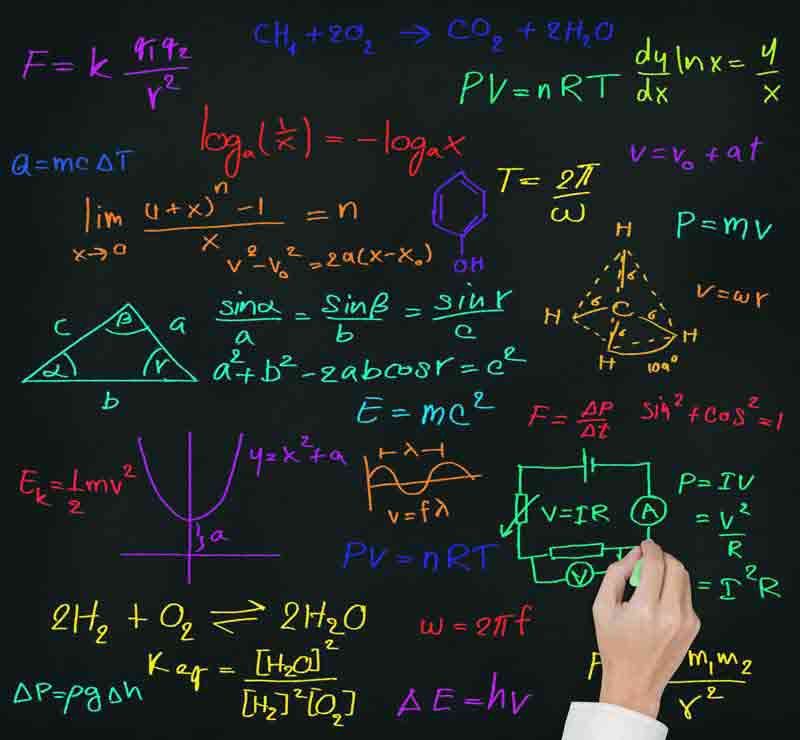 CH₄ + 2O₂ → CO₂ + 2H₂O
F = k q₁q₂ / r²
dy/dx ln x = y/x
PV = nRT
logₐ(1/x) = -logₐx
Q = mcΔT
v = v₀ + at
T = 2π/ω
lim x→0 ((1+x)ⁿ - 1)/x = n
P = mv
v² - v₀² = 2a(x - x₀)
OH
H
C
H
H
H
109°
v = ωr
c β a
α r
b
sinα/a = sinβ/b = sinr/c
a² + b² - 2abcosr = c²
E = mc²
F = ΔP/Δt
sin² + cos² = 1
Eₖ = 1/2 mv²
y = x² + a
a
λ
v = fλ
V = IR
A
V
P = IV
= V²/R
= I²R
PV = nRT
2H₂ + O₂ ⇌ 2H₂O
ω = 2πf
Keq = [H₂O]² / [H₂]²[O₂]
ΔP = ρgΔh
ΔE = hv
m₁m₂ / r²